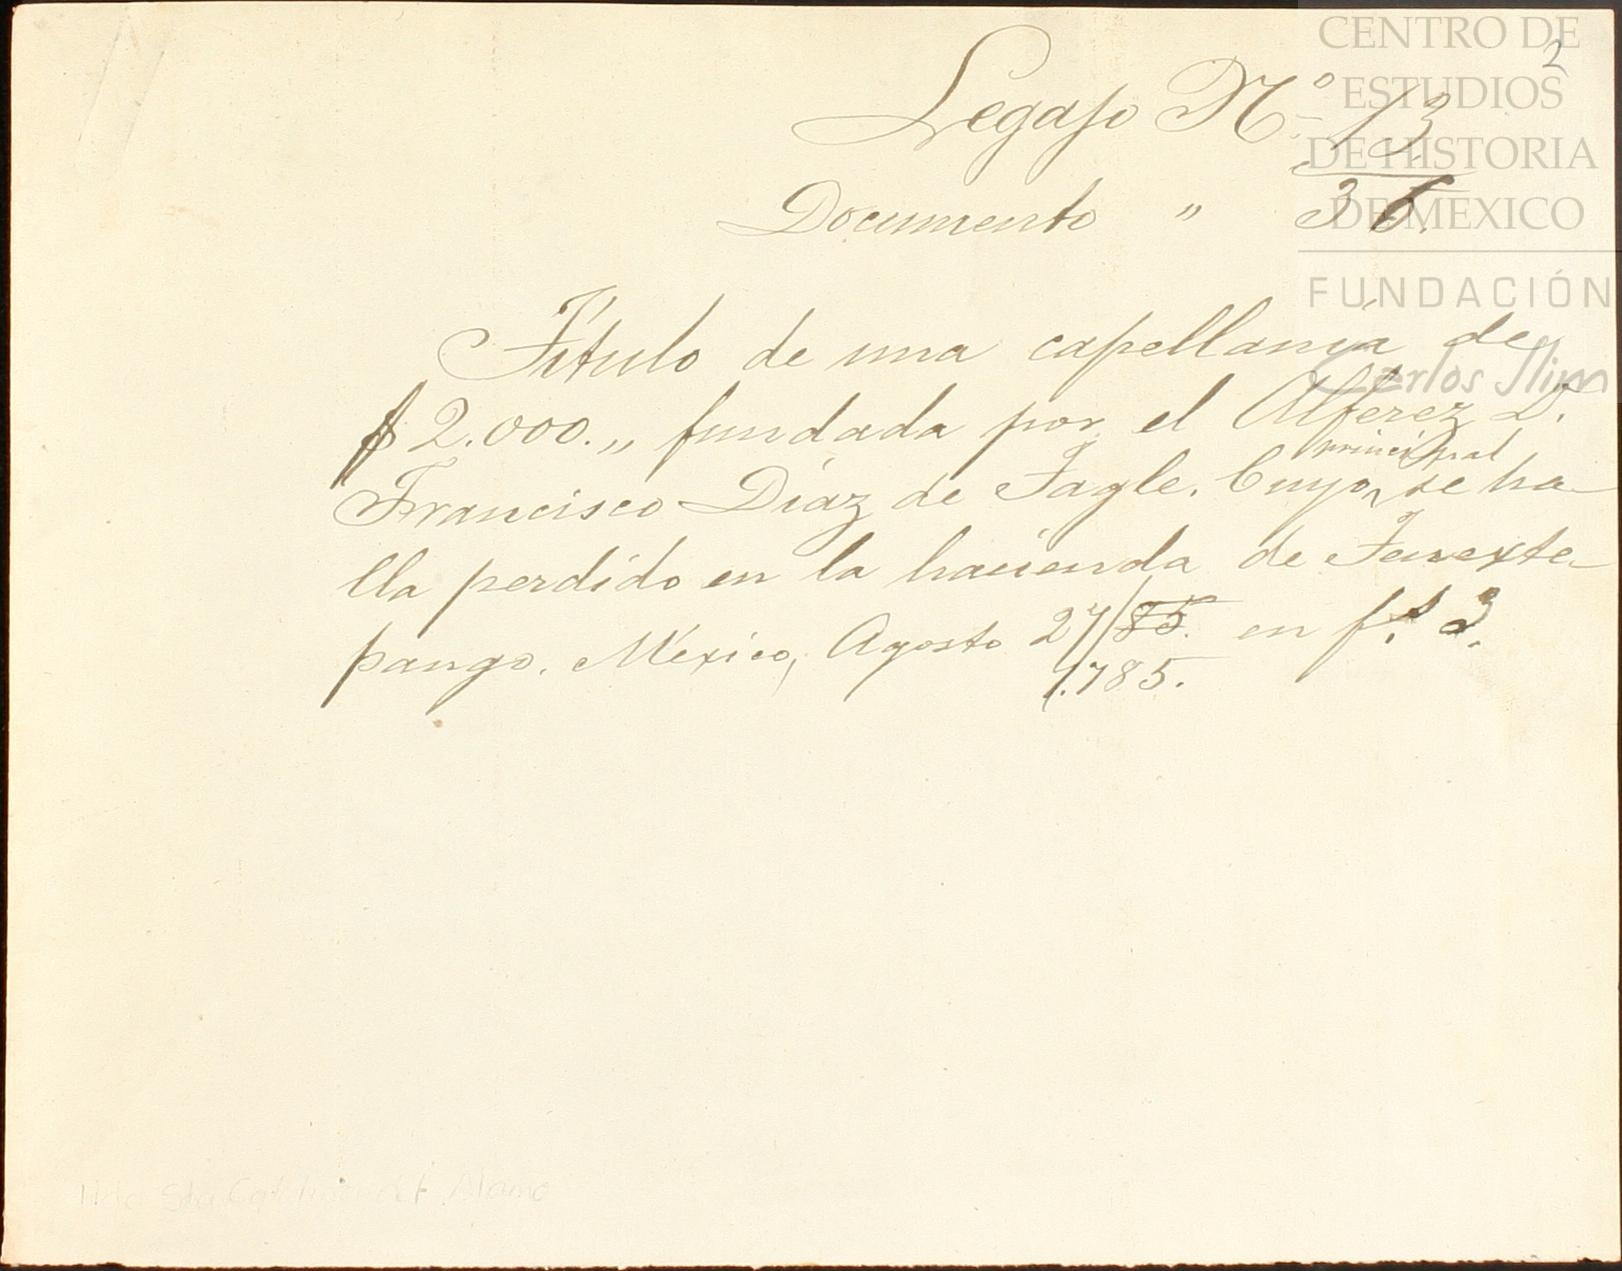 CENTRO DE
ESTUDIOS
DE HISTORIA
DE MEXICO
FUNDACIÓN
Carlos Slim
2
Legajo Nº 13
Documento " 36.
Título de una capellanía de
$ 2.000.,, fundada por el Alférez D.
Francisco Díaz de Tagle. Cuyo principal se ha-
lla perdido en la hacienda de Tenexte-
pango. México, Agosto 27/85. en fs. 3.
1.785.
Hda Sta Catarina del Alamo